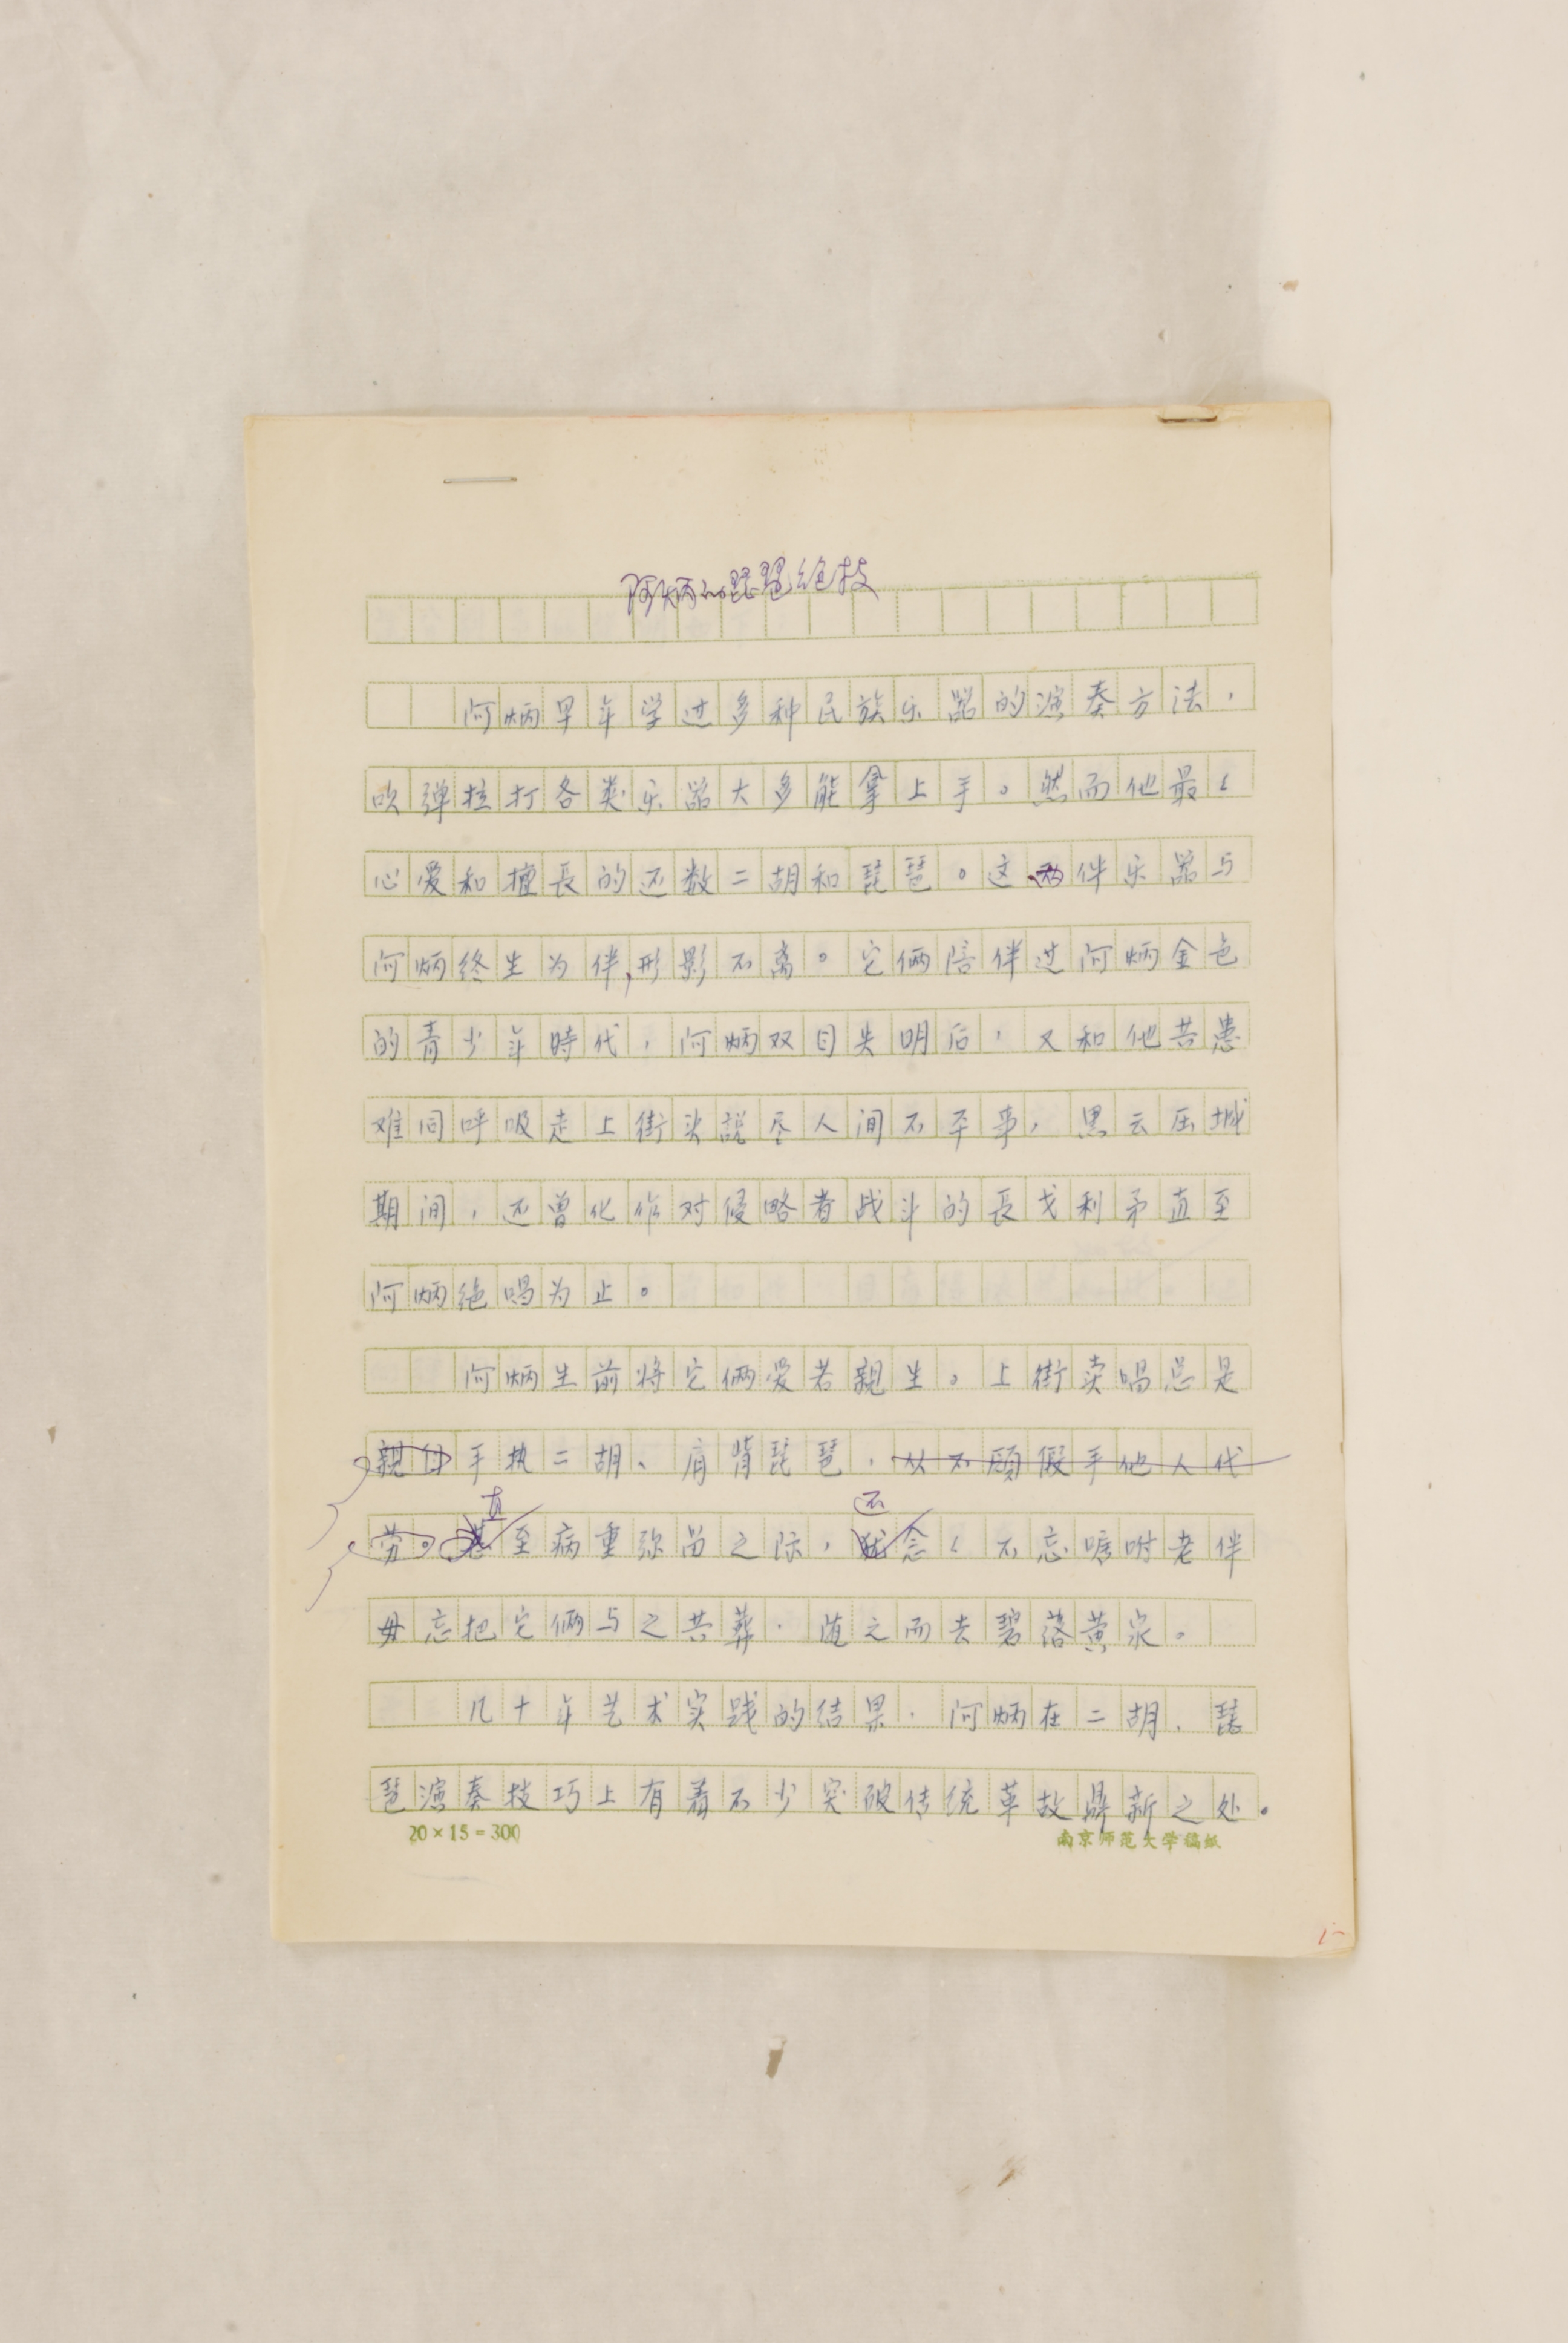 阿炳的琵琶绝技
阿炳早年学过多种民族乐器的演奏方法，
吹弹拉打各类乐器大多能拿上手。然而他最
心爱和擅長的还数二胡和琵琶。这两件乐器与
阿炳终生为伴，形影不离。它俩陪伴过阿炳金色
的青少年時代，阿炳双目失明后，又和他共患
难同呼吸走上街头説尽人间不平事，黑云压城
期间，还曾化作对侵略者战斗的長戈利矛直至
阿炳绝唱为止。
阿炳生前将它俩爱若親生。上街卖唱总是
親自手执二胡、肩背琵琶，从不願假手他人代
劳。甚至病重弥留之际，犹念念不忘嘱咐老伴
直
还
毋忘把它俩与之共葬．随之而去碧落黄泉。
几十年艺术实践的结果．阿炳在二胡、琵
琶演奏技巧上有着不少突破传统革故鼎新之处。
20×15=300
南京师范大学稿纸